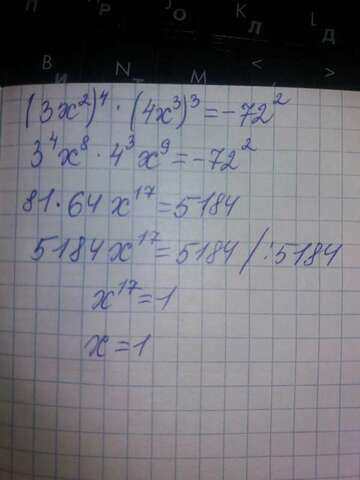 П Р Ю К Л L Д
В И N Т M < >
(3x²)⁴ · (4x³)³ = -72²
3⁴x⁸ · 4³x⁹ = -72²
81·64 x¹⁷ = 5184
5184 x¹⁷ = 5184 /:5184
x¹⁷ = 1
x = 1